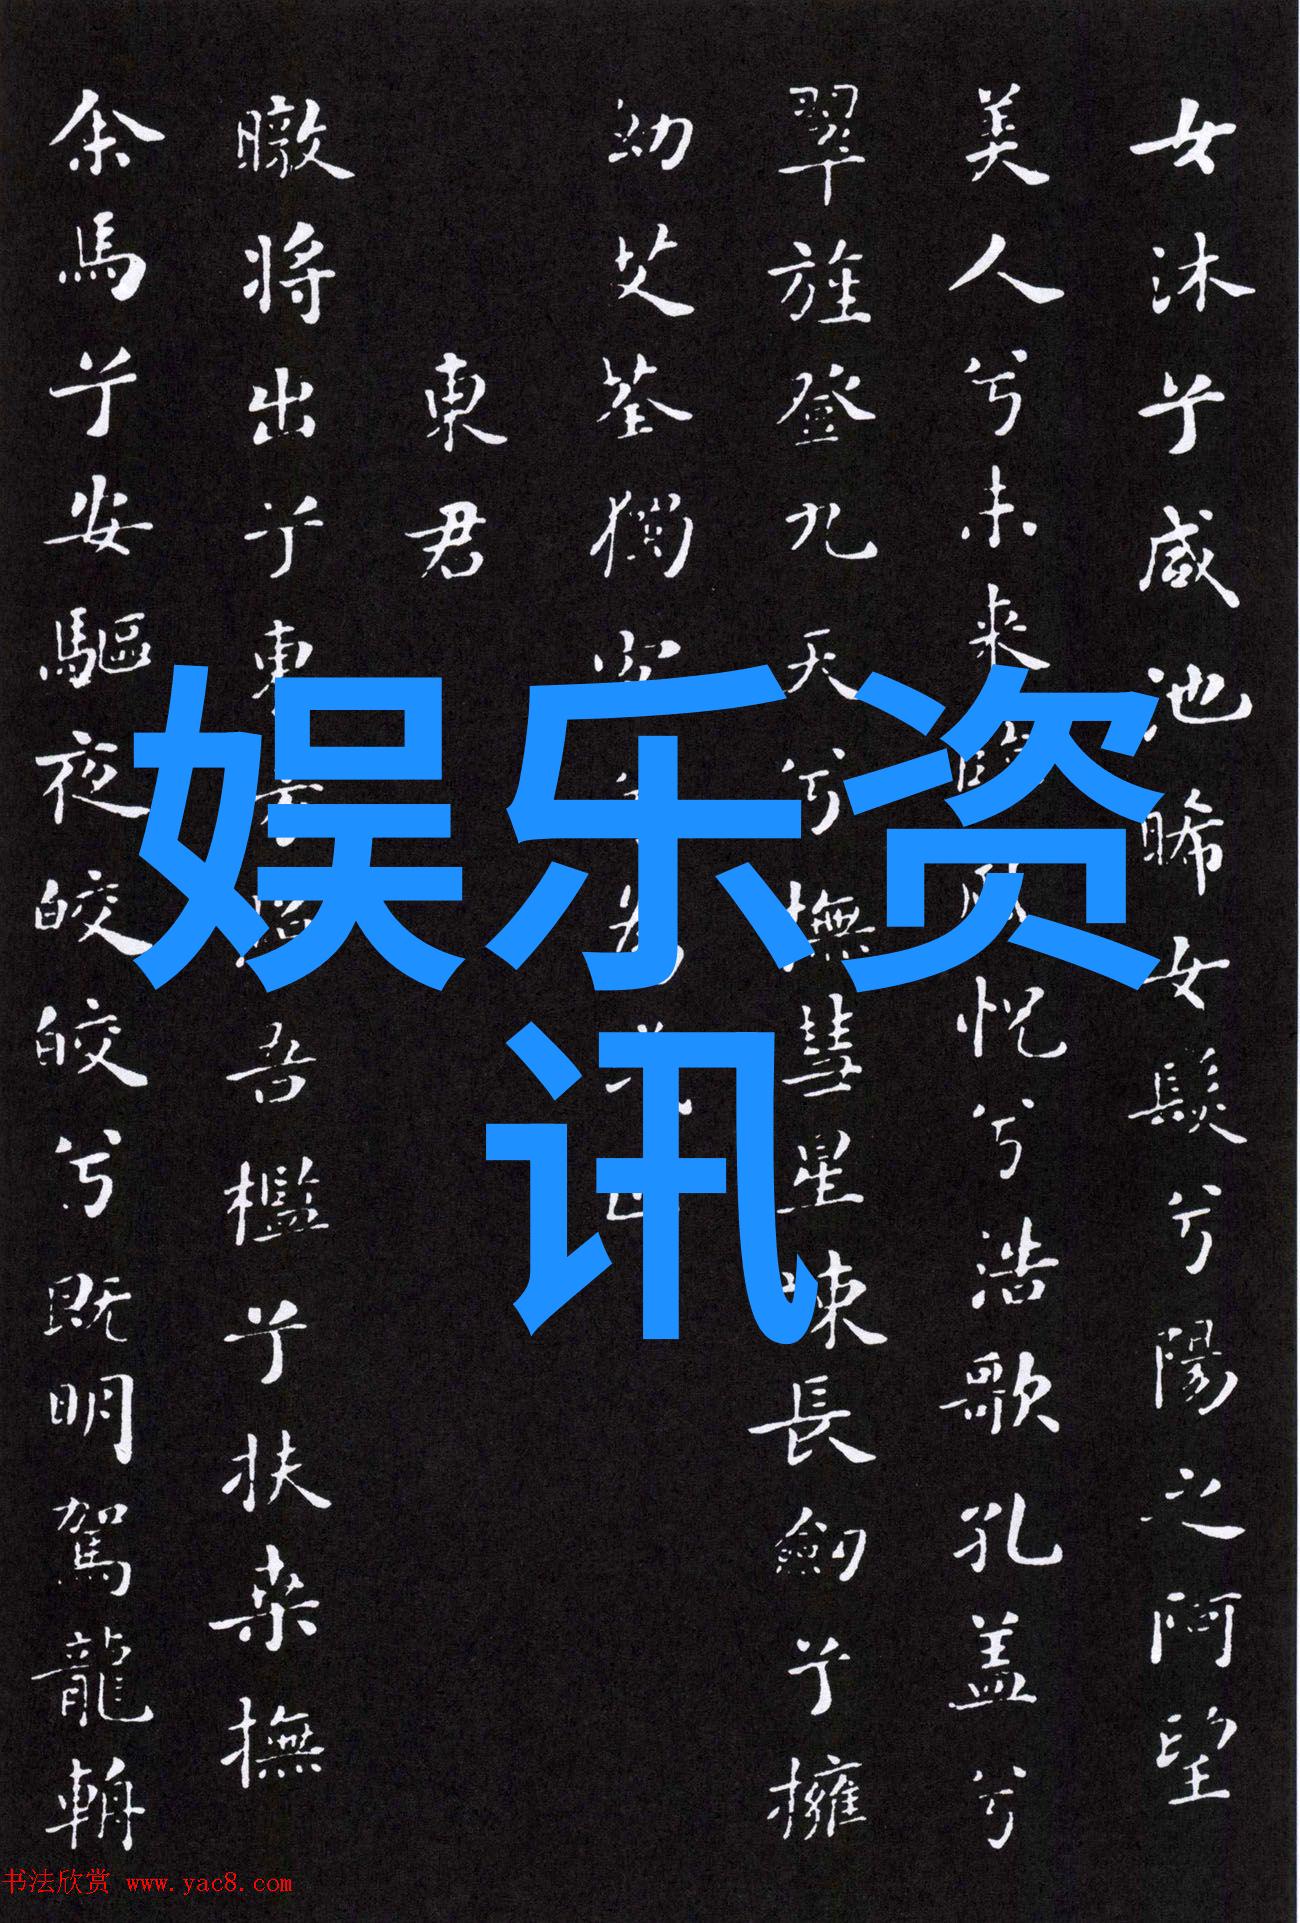 女沐兮咸池晞女髮兮陽之阿望
美人兮未来臨風怳兮浩歌孔盖兮
翠旌登九天兮撫彗星竦長劍兮擁
幼艾荃獨宜
東君
暾将出兮東方吾檻兮扶桒撫
余馬兮安驅夜皎皎兮既明駕龍輈
娱乐资
讯
书法欣赏 www.yac8.com